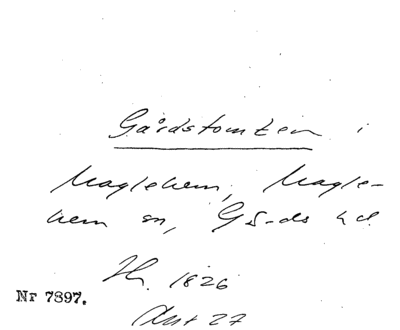 Gårdstomten i
Maglehem, Magle-
hem sn, Gärds hd.
1826
Nr 7897.
27